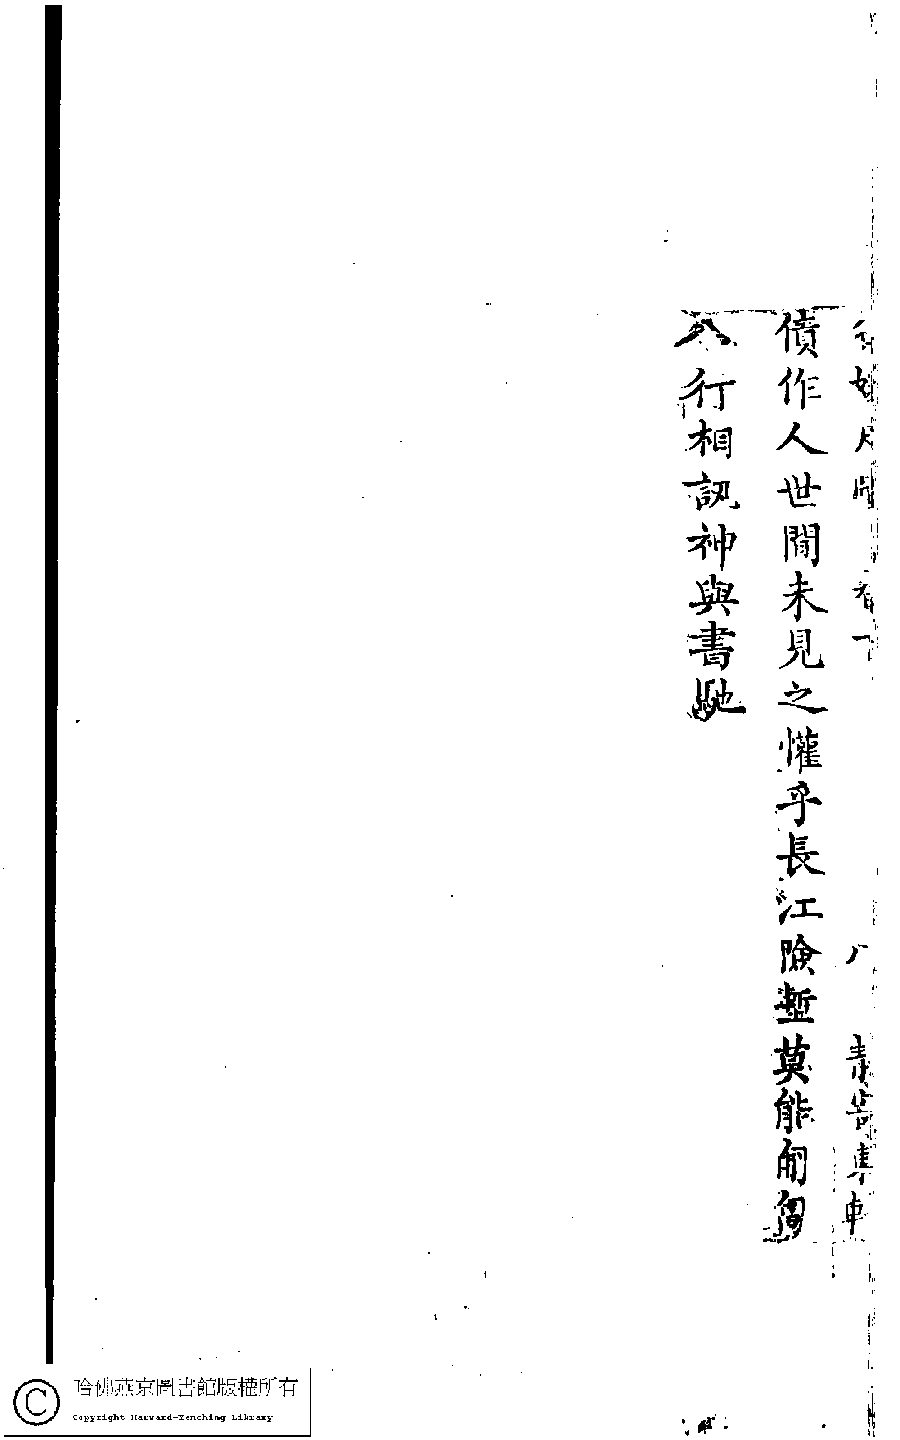 債作人世間未見之懽乎長江險塹莫能匍匐
八行相訊神與書馳
哈佛燕京圖書館版權所有
Copyright Harvard-Yenching Library